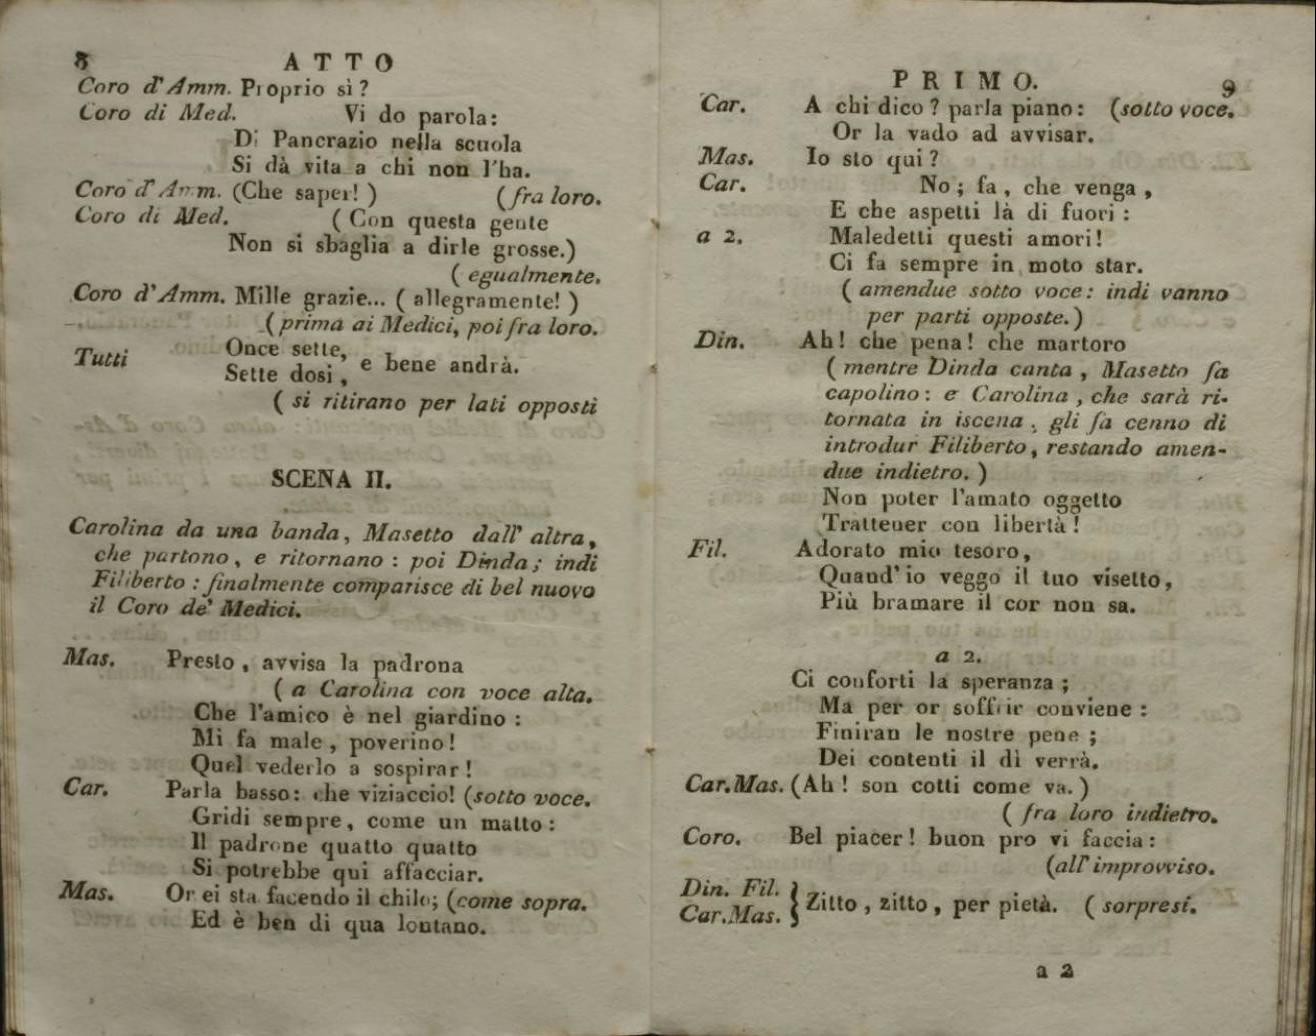 8 ATTO
Coro d'Amm. Proprio sì?
Coro di Med. Vi do parola:
Di Pancrazio nella scuola
Si dà vita a chi non l'ha.
Coro d'Amm. (Che saper!) (fra loro.
Coro di Med. (Con questa gente
Non si sbaglia a dirle grosse.)
(egualmente.
Coro d'Amm. Mille grazie... (allegramente!)
(prima ai Medici, poi fra loro.
Tutti Once sette,
Sette dosi, e bene andrà.
(si ritirano per lati opposti
SCENA II.
Carolina da una banda, Masetto dall' altra,
che partono, e ritornano: poi Dinda; indi
Filiberto: finalmente comparisce di bel nuovo
il Coro de' Medici.
Mas. Presto, avvisa la padrona
(a Carolina con voce alta.
Che l'amico è nel giardino:
Mi fa male, poverino!
Quel vederlo a sospirar!
Car. Parla basso: che viziaccio! (sotto voce.
Gridi sempre, come un matto:
Il padrone quatto quatto
Si potrebbe qui affacciar.
Mas. Or ei sta facendo il chilo; (come sopra.
Ed è ben di qua lontano.
PRIMO. 9
Car. A chi dico? parla piano: (sotto voce.
Or la vado ad avvisar.
Mas. Io sto qui?
Car. No; fa, che venga,
E che aspetti là di fuori:
a 2. Maledetti questi amori!
Ci fa sempre in moto star.
(amendue sotto voce: indi vanno
per parti opposte.)
Din. Ah! che pena! che martoro
(mentre Dinda canta, Masetto fa
capolino: e Carolina, che sarà ri-
tornata in iscena, gli fa cenno di
introdur Filiberto, restando amen-
due indietro.)
Non poter l'amato oggetto
Trattener con libertà!
Fil. Adorato mio tesoro,
Quand' io veggo il tuo visetto,
Più bramare il cor non sa.
a 2.
Ci conforti la speranza;
Ma per or soffrir conviene:
Finiran le nostre pene;
Dei contenti il dì verrà.
Car. Mas. (Ah! son cotti come va.)
(fra loro indietro.
Coro. Bel piacer! buon pro vi faccia:
(all' improvviso.
Din. Fil.
Car. Mas. } Zitto, zitto, per pietà. (sorpresi.
a 2